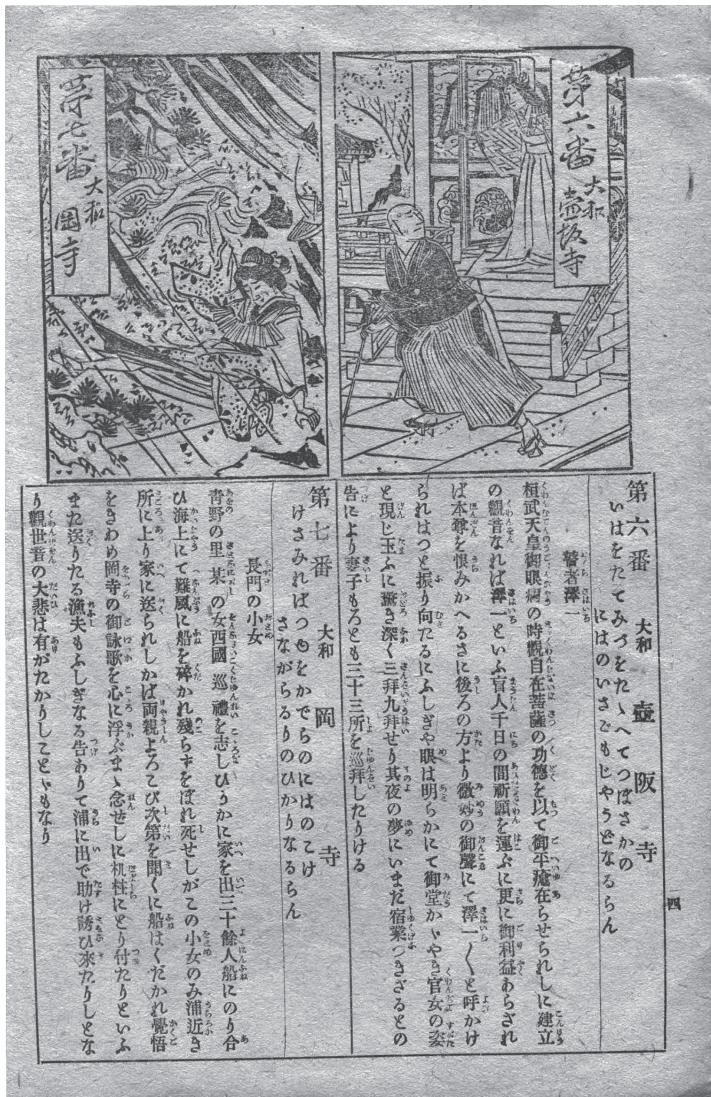 第六番
大和
壺坂寺
第七番
大和
岡寺
四
第六番 大和 壺阪寺
いはをたてみづをたゝへてつぼさかの
にはのいさごもじやうどなるらん
瞽者澤一
桓武天皇御眼病の時觀自在菩薩の功德を以て御平癒在らせられしに建立
の觀音なれば澤一といふ盲人千日の間祈願を運ぶに更に御利益あらされ
ば本尊を恨みかへるさに後ろの方より微妙の御聲にて澤一〳〵と呼かけ
られはつと振り向たるにふしぎや眼は明らかにて御堂かゞやき官女の姿
と現じ玉ふに驚き深く三拜九拜せり其夜の夢にいまだ宿業つきざるとの
告により妻子もろとも三十三所を巡拜したりける
第七番 大和 岡寺
けさみればつゆをかでらのにはのこけ
さながらるりのひかりなるらん
長門の小女
靑野の里某の女西國巡禮を志しひそかに家を出三十餘人船にのり合
ひ海上にて難風に船を碎かれ殘らずをぼれ死せしがこの小女のみ浦近き
所に上り家に送られしかば両親よろこび次第を聞くに船はくだかれ覺悟
をきわめ岡寺の御詠歌を心に浮ぶまゝ念せしに机柱にとり付たりといふ
また送りたる漁夫もふしぎなる告ありて浦に出で助け誘ひ來たりしとな
り觀世音の大悲は有がたかりしことゞもなり